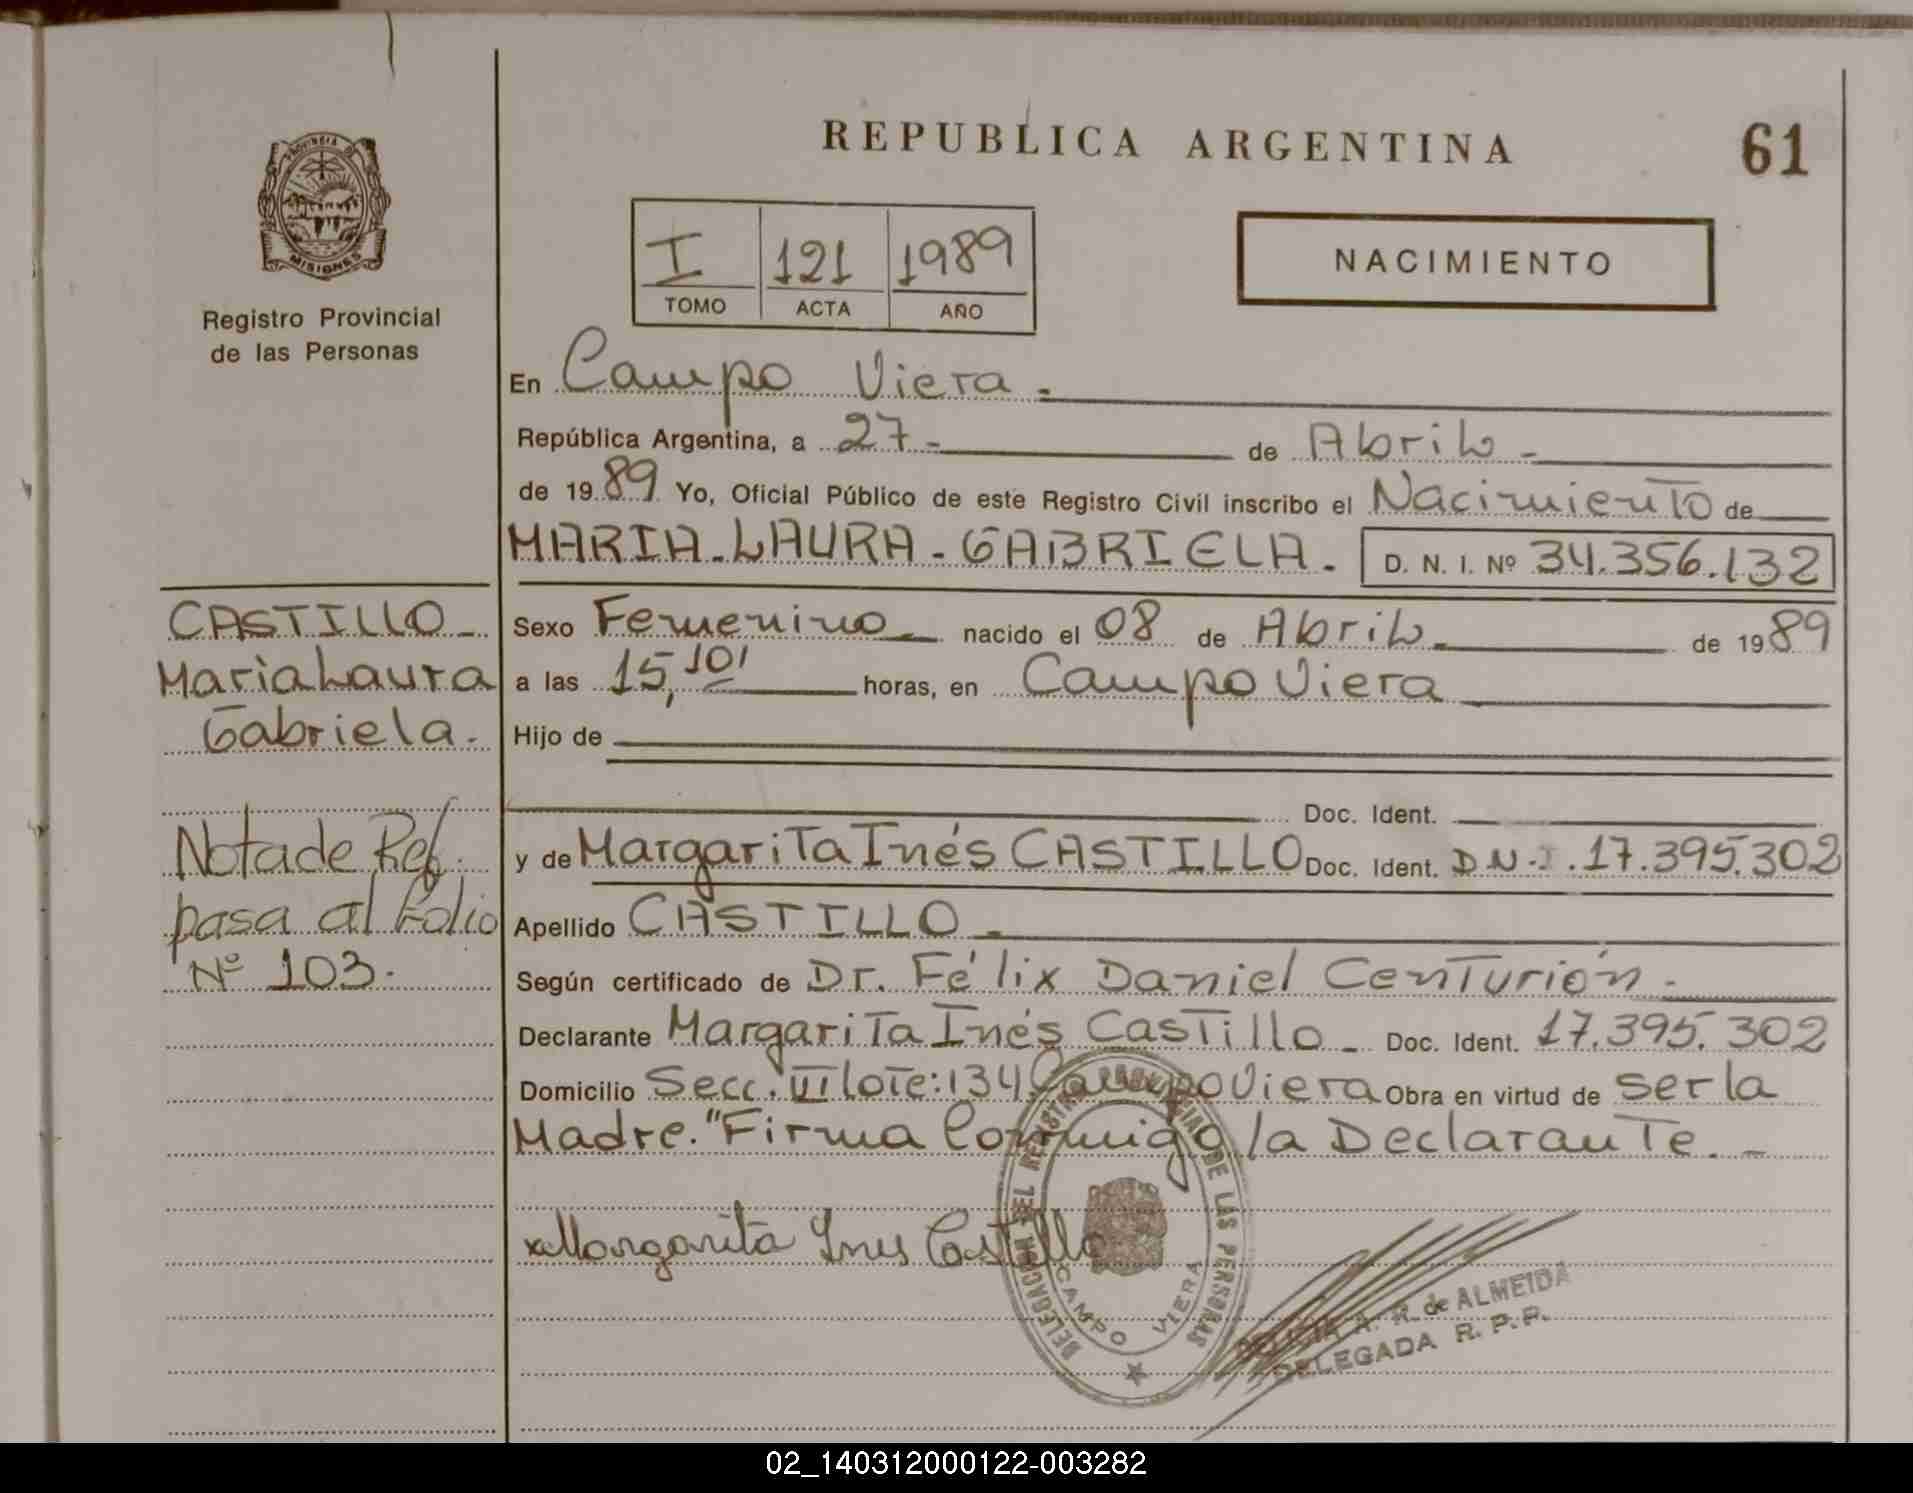 REPUBLICA ARGENTINA
61
PROVINCIA DE
MISIONES
Registro Provincial
de las Personas
I 121 1989
TOMO ACTA AÑO
NACIMIENTO
En Campo Viera.
República Argentina, a 27 de Abril
de 1989 Yo, Oficial Público de este Registro Civil inscribo el Nacimiento de
MARIA-LAURA-GABRIELA. D. N. I. Nº 34.356.132
CASTILLO
Maria Laura
Gabriela.
Sexo Femenino nacido el 08 de Abril de 1989
a las 15,10' horas, en Campo Viera
Hijo de
Doc. Ident.
y de Margarita Inés CASTILLO Doc. Ident. D.N.I. 17.395.302
Nota de Ref.
pasa al folio
Nº 103.
Apellido CASTILLO.
Según certificado de Dr. Félix Daniel Centurión.
Declarante Margarita Inés Castillo Doc. Ident. 17.395.302
Domicilio Secc. VII lote: 134 Campo Viera Obra en virtud de ser la
Madre. "Firma Conmigo la Declarante.
x Margarita Ines Castillo
DELEGACION DEL REGISTRO PROVINCIAL DE LAS PERSONAS
CAMPO VIERA
A. R. de ALMEIDA
DELEGADA R. P. P.
02_140312000122-003282